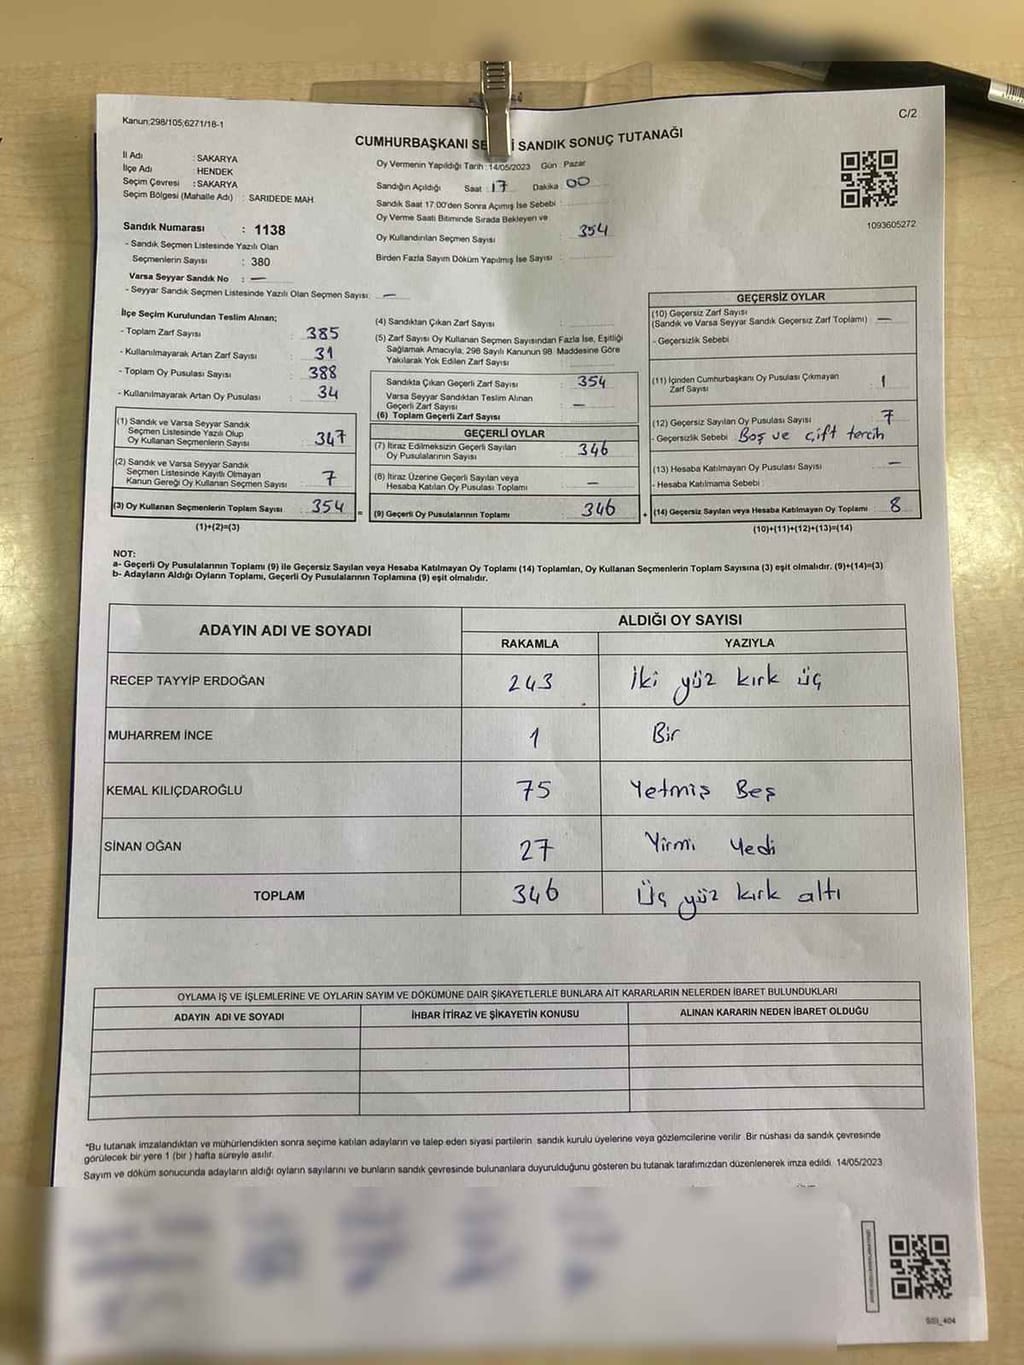 Kanun;298/105;6271/18-1
C/2
CUMHURBAŞKANI SE İ SANDIK SONUÇ TUTANAĞI
İl Adı : SAKARYA
İlçe Adı : HENDEK
Seçim Çevresi : SAKARYA
Seçim Bölgesi (Mahalle Adı) : SARIDEDE MAH
Sandık Numarası : 1138
- Sandık Seçmen Listesinde Yazılı Olan
Seçmenlerin Sayısı : 380
Varsa Seyyar Sandık No : —
- Seyyar Sandık Seçmen Listesinde Yazılı Olan Seçmen Sayısı: —
Oy Vermenin Yapıldığı Tarih : 14/05/2023 Gün : Pazar
Sandığın Açıldığı Saat : 17 Dakika : 00
Sandık Saat 17.00'den Sonra Açımış İse Sebebi :
Oy Verme Saati Bitiminde Sırada Bekleyen ve
Oy Kullandırılan Seçmen Sayısı : 354
Birden Fazla Sayım Döküm Yapılmış İse Sayısı :
1093605272
İlçe Seçim Kurulundan Teslim Alınan;
- Toplam Zarf Sayısı : 385
- Kullanılmayarak Artan Zarf Sayısı : 31
- Toplam Oy Pusulası Sayısı : 388
- Kullanılmayarak Artan Oy Pusulası : 34
(1) Sandık ve Varsa Seyyar Sandık
Seçmen Listesinde Yazılı Olup
Oy Kullanan Seçmenlerin Sayısı : 347
(2) Sandık ve Varsa Seyyar Sandık
Seçmen Listesinde Kayıtlı Olmayan
Kanun Gereği Oy Kullanan Seçmen Sayısı : 7
(3) Oy Kullanan Seçmenlerin Toplam Sayısı : 354
(1)+(2)=(3)
(4) Sandıktan Çıkan Zarf Sayısı :
(5) Zarf Sayısı Oy Kullanan Seçmen Sayısından Fazla İse, Eşitliği
Sağlamak Amacıyla, 298 Sayılı Kanunun 98. Maddesine Göre
Yakılarak Yok Edilen Zarf Sayısı :
Sandıkta Çıkan Geçerli Zarf Sayısı : 354
Varsa Seyyar Sandıktan Teslim Alınan
Geçerli Zarf Sayısı : —
(6) Toplam Geçerli Zarf Sayısı
GEÇERLİ OYLAR
(7) İtiraz Edilmeksizin Geçerli Sayılan
Oy Pusulalarının Sayısı : 346
(8) İtiraz Üzerine Geçerli Sayılan veya
Hesaba Katılan Oy Pusulası Toplamı : —
= (9) Geçerli Oy Pusulalarının Toplamı : 346
GEÇERSİZ OYLAR
(10) Geçersiz Zarf Sayısı
(Sandık ve Varsa Seyyar Sandık Geçersiz Zarf Toplamı) : —
- Geçersizlik Sebebi
(11) İçinden Cumhurbaşkanı Oy Pusulası Çıkmayan
Zarf Sayısı : 1
(12) Geçersiz Sayılan Oy Pusulası Sayısı : 7
- Geçersizlik Sebebi Boş ve çift tercih
(13) Hesaba Katılmayan Oy Pusulası Sayısı : —
- Hesaba Katılmama Sebebi :
+ (14) Geçersiz Sayılan veya Hesaba Katılmayan Oy Toplamı : 8
(10)+(11)+(12)+(13)=(14)
NOT:
a- Geçerli Oy Pusulasının Toplamı (9) ile Geçersiz Sayılan veya Hesaba Katılmayan Oy Toplamı (14) Toplamları, Oy Kullanan Seçmenlerin Toplam Sayısına (3) eşit olmalıdır. (9)+(14)=(3)
b- Adayların Aldığı Oyların Toplamı, Geçerli Oy Pusulalarının Toplamına (9) eşit olmalıdır.
ADAYIN ADI VE SOYADI ALDIĞI OY SAYISI
RAKAMLA YAZIYLA
RECEP TAYYİP ERDOĞAN 243 İki yüz kırk üç
MUHARREM İNCE 1 Bir
KEMAL KILIÇDAROĞLU 75 Yetmiş Beş
SİNAN OĞAN 27 Yirmi Yedi
TOPLAM 346 Üç yüz kırk altı
OYLAMA İŞ VE İŞLEMLERİNE VE OYLARIN SAYIM VE DÖKÜMÜNE DAİR ŞİKAYETLERLE BUNLARA AİT KARARLARIN NELERDEN İBARET BULUNDUKLARI
ADAYIN ADI VE SOYADI İHBAR İTİRAZ VE ŞİKAYETİN KONUSU ALINAN KARARIN NEDEN İBARET OLDUĞU
*Bu tutanak imzalandıktan ve mühürlendikten sonra seçime katılan adayların ve talep eden siyasi partilerin sandık kurulu üyelerine veya gözlemcilerine verilir. Bir nüshası da sandık çevresinde
görülecek bir yere 1 (bir ) hafta süreyle asılır.
Sayım ve döküm sonucunda adayların aldığı oyların sayılarını ve bunların sandık çevresinde bulunanlara duyurulduğunu gösteren bu tutanak tarafımızdan düzenlenerek imza edildi. 14/05/2023
SSI_404